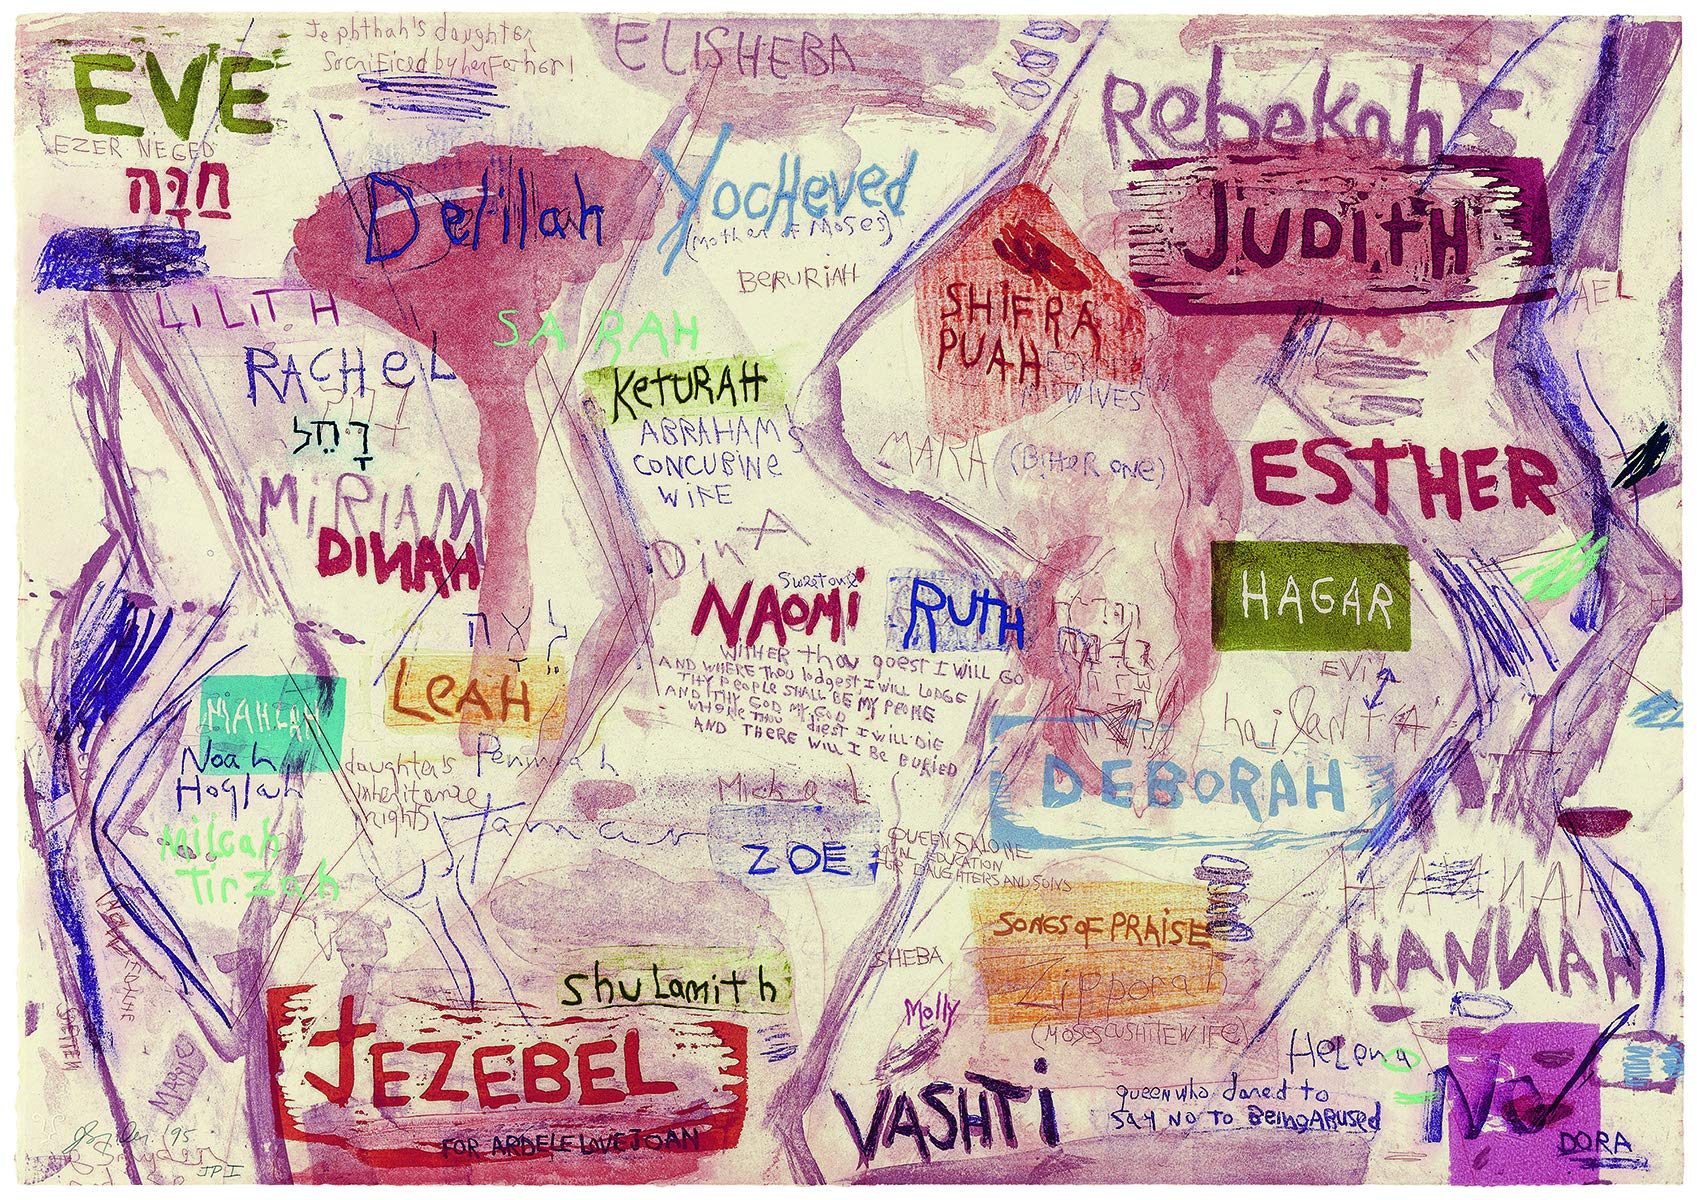 EVE
EZER NEGED
חַוָּה
Jephthah's daughter
Sacrificed by her Father!
ELISHEBA
Rebekah
JUDITH
Delilah
Yocheved
(Mother of Moses)
BERURIAH
LILITH
SARAH
RACHEL
רָחֵל
KETURAH
ABRAHAMS
CONCUBINE
WIFE
SHIFRA
PUAH
EGYPTIAN
MIDWIVES
MARA (Bitter one)
ESTHER
MiRiAM
DINAH
DinA
Sweet one
NAOMi
RUTH
WITHER thou goest I WILL GO
AND WHERE THOU lodgest I WILL LODGE
THY PEOPLE SHALL BE MY PEOPLE
AND THY GOD MY GOD
WHERE THOU diest I WILL DIE
AND THERE WILL I BE BURIED
HAGAR
EViL
לֵאָה
LEAH
MAHLAH
Noah
Hoglah
Milcah
Tirzah
daughter's
inheritance
rights
Peninnah
Tamar
Michal
ZOE
DEBORAH
QUEEN SALOME
EDUCATION
FOR DAUGHTERS AND SONS
SONGS OF PRAISE
Zipporah
(MOSES CUSHITE WIFE)
SHEBA
HANNAH
HANNAH
shulamith
Molly
JEZEBEL
FOR ARDELE LOVE JOAN
VASHTi
Helena
queen who dared to
SAY NO TO BEingABUSED
DORA
MARIE
'95